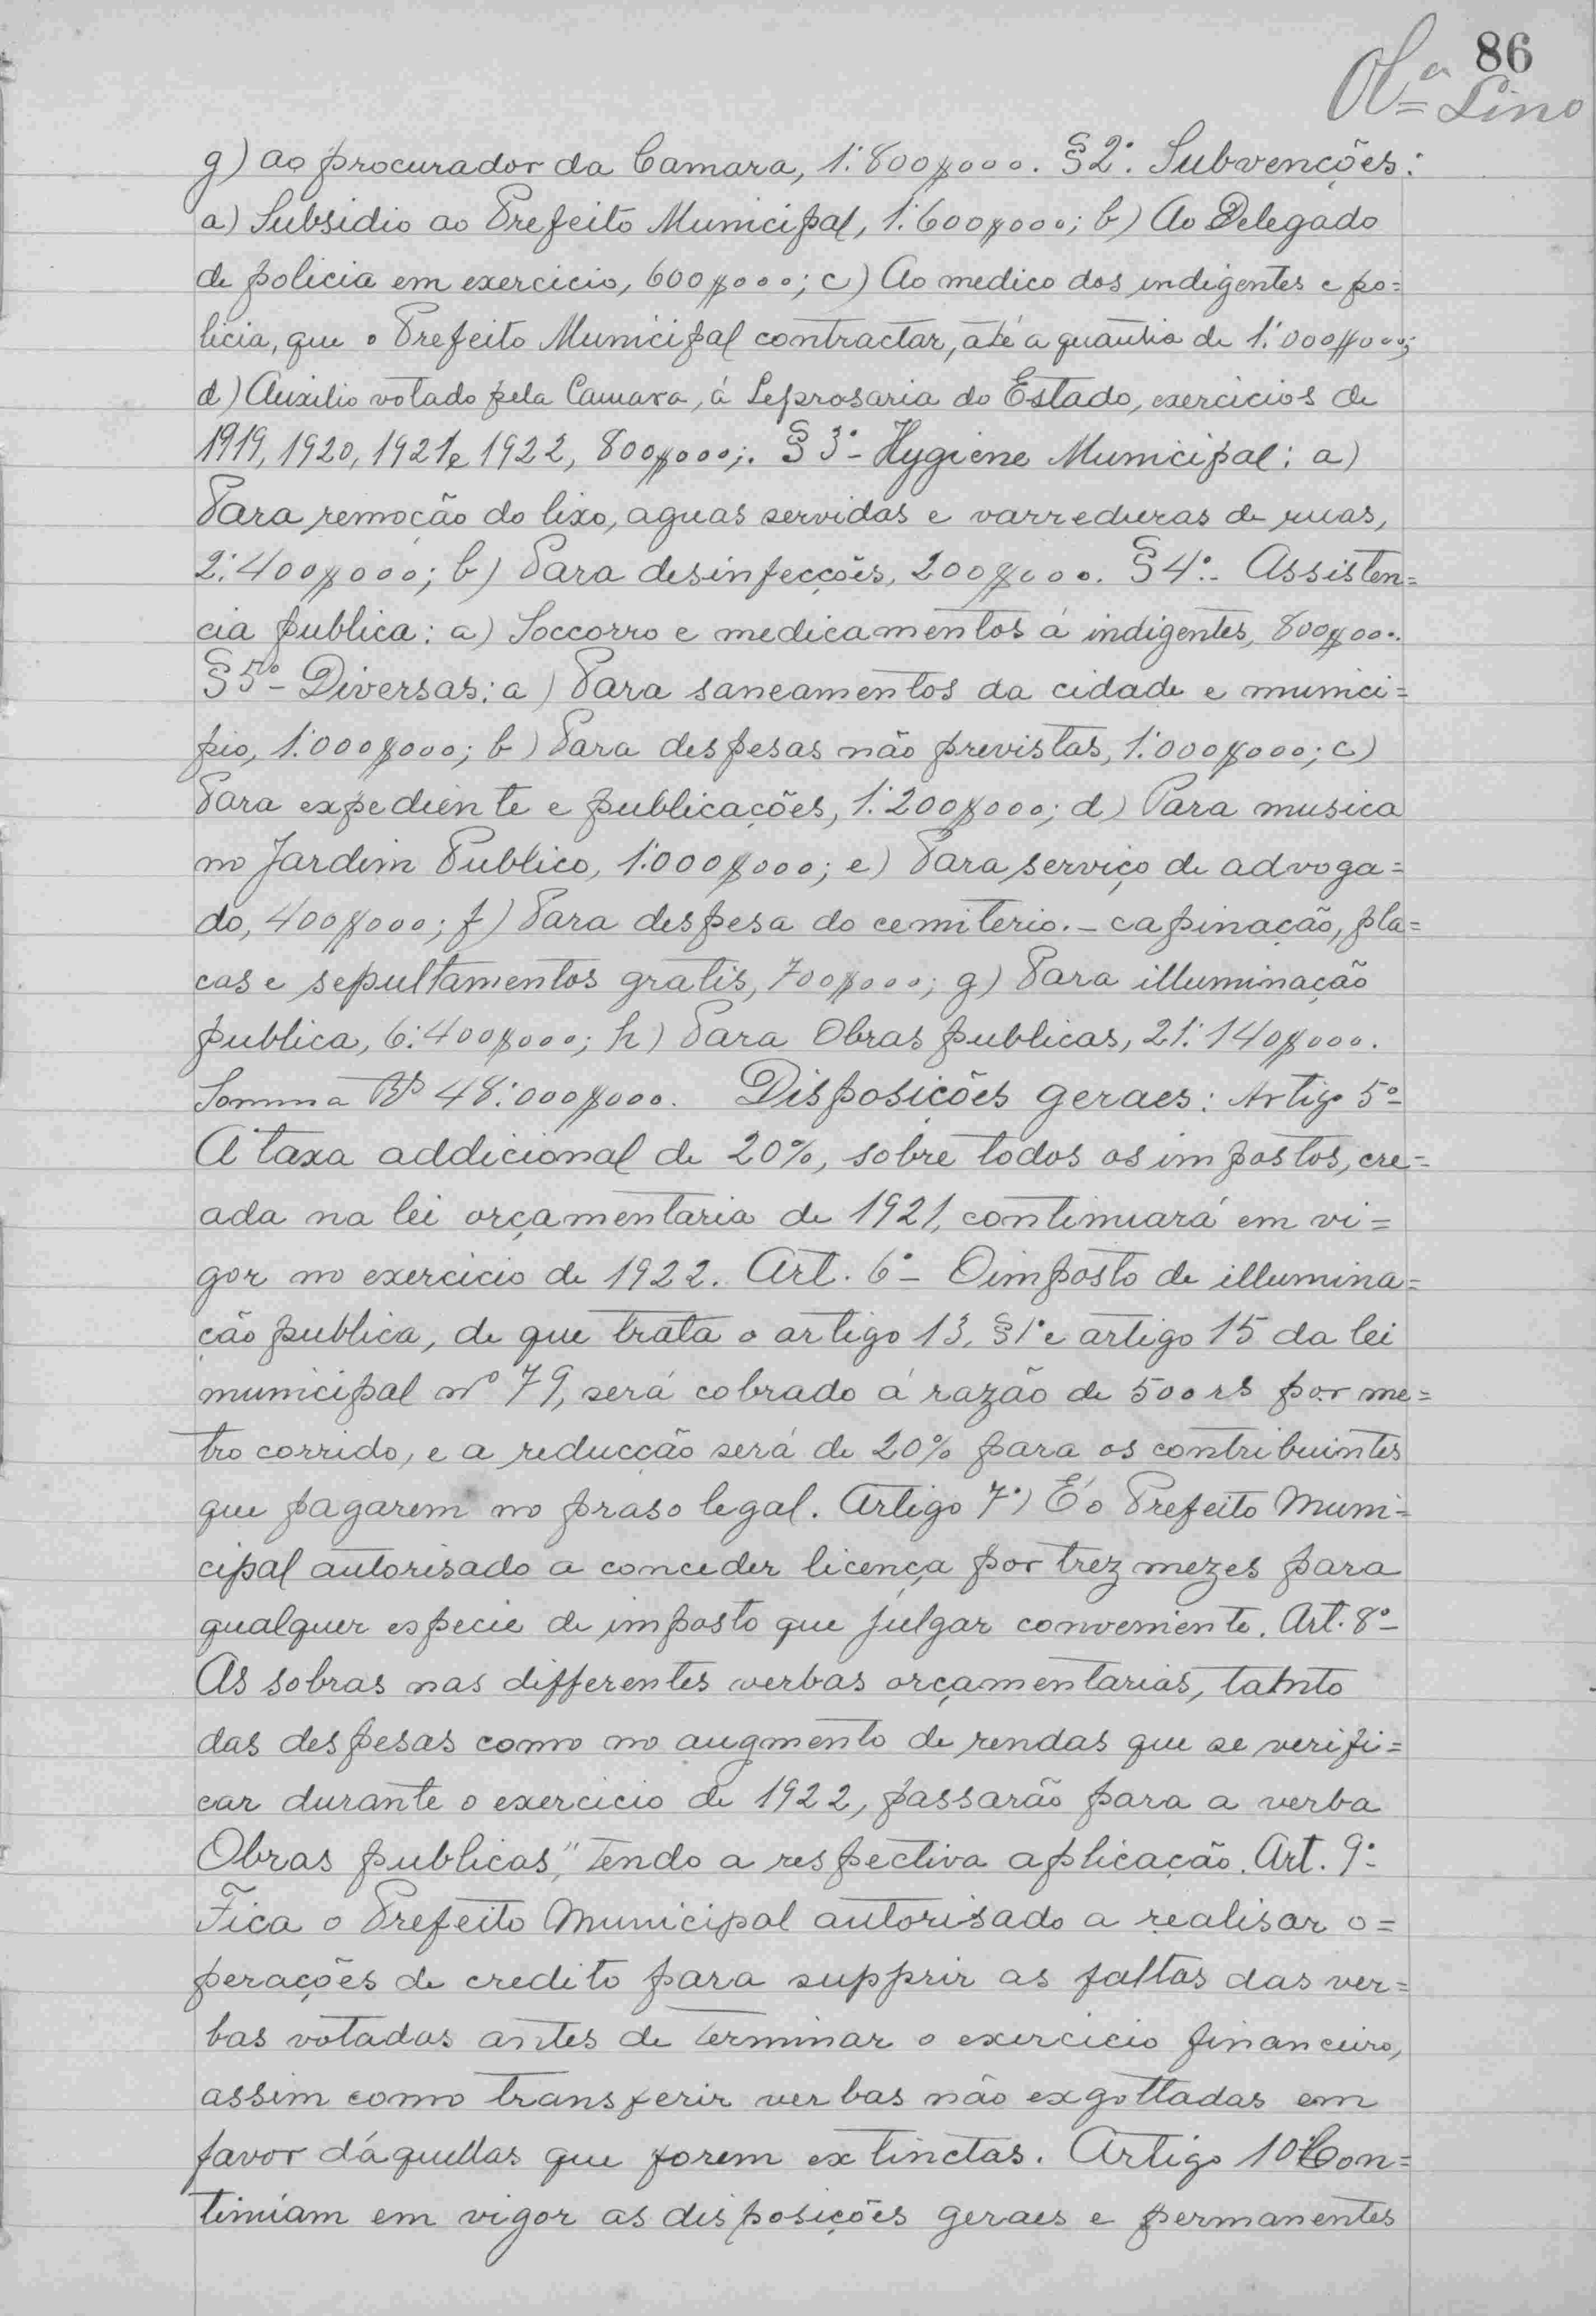 86
Ol.ª Lino
g) ao procurador da Camara, 1:800$000. § 2º. Subvenções:
a) Subsidio ao Prefeito Municipal, 1:600$000; b) Ao Delegado
de policia em exercicio, 600$000; c) Ao medico dos indigentes e po=
licia, que o Prefeito Municipal contractar, até a quantia de 1:000$000;
d) Auxilio votado pela Camara, á Leprosaria do Estado, exercicios de
1919, 1920, 1921 e 1922, 800$000;. § 3º - Hygiene Municipal: a)
Para remoção do lixo, aguas servidas e varreduras de ruas,
2:400$000; b) Para desinfecções, 200$000. § 4º.- Assisten=
cia publica: a) Soccorro e medicamentos á indigentes, 800$000.
§ 5º - Diversas: a) Para saneamentos da cidade e munici=
pio, 1:000$000; b) Para despesas não previstas, 1:000$000; c)
Para expediente e publicações, 1:200$000; d) Para musica
no Jardim Publico, 1:000$000; e) Para serviço de advoga=
do, 400$000; f) Para despesa do cemiterio.- capinação, pla=
cas e sepultamentos gratis, 700$000; g) Para illuminação
publica, 6:400$000; h) Para Obras publicas, 21:140$000.
Somma Rs 48:000$000. Disposições geraes: Artigo 5º -
A taxa addicional de 20%, sobre todos os impostos, cre=
ada na lei orçamentaria de 1921, continuará em vi=
gor no exercicio de 1922. Art. 6º - O imposto de illumina=
ção publica, de que trata o artigo 13, § 1º e artigo 15 da lei
municipal nº 79, será cobrado á razão de 500 rs por me=
tro corrido, e a reducção será de 20% para os contribuintes
que pagarem no praso legal. Artigo 7º) É o Prefeito Muni=
cipal autorisado a conceder licença por trez mezes para
qualquer especie de imposto que julgar conveniente. Art. 8º -
As sobras nas differentes verbas orçamentarias, tanto
das despesas como no augmento de rendas que se verifi=
car durante o exercicio de 1922, passarão para a verba
Obras publicas," tendo a respectiva aplicação. Art. 9º.
Fica o Prefeito Municipal autorisado a realisar o=
perações de credito para supprir as faltas das ver=
bas votadas antes de terminar o exercicio financeiro,
assim como transferir verbas não exgottadas em
favor d'áquellas que forem extinctas. Artigo 10º Con=
tinúam em vigor as disposições geraes e permanentes